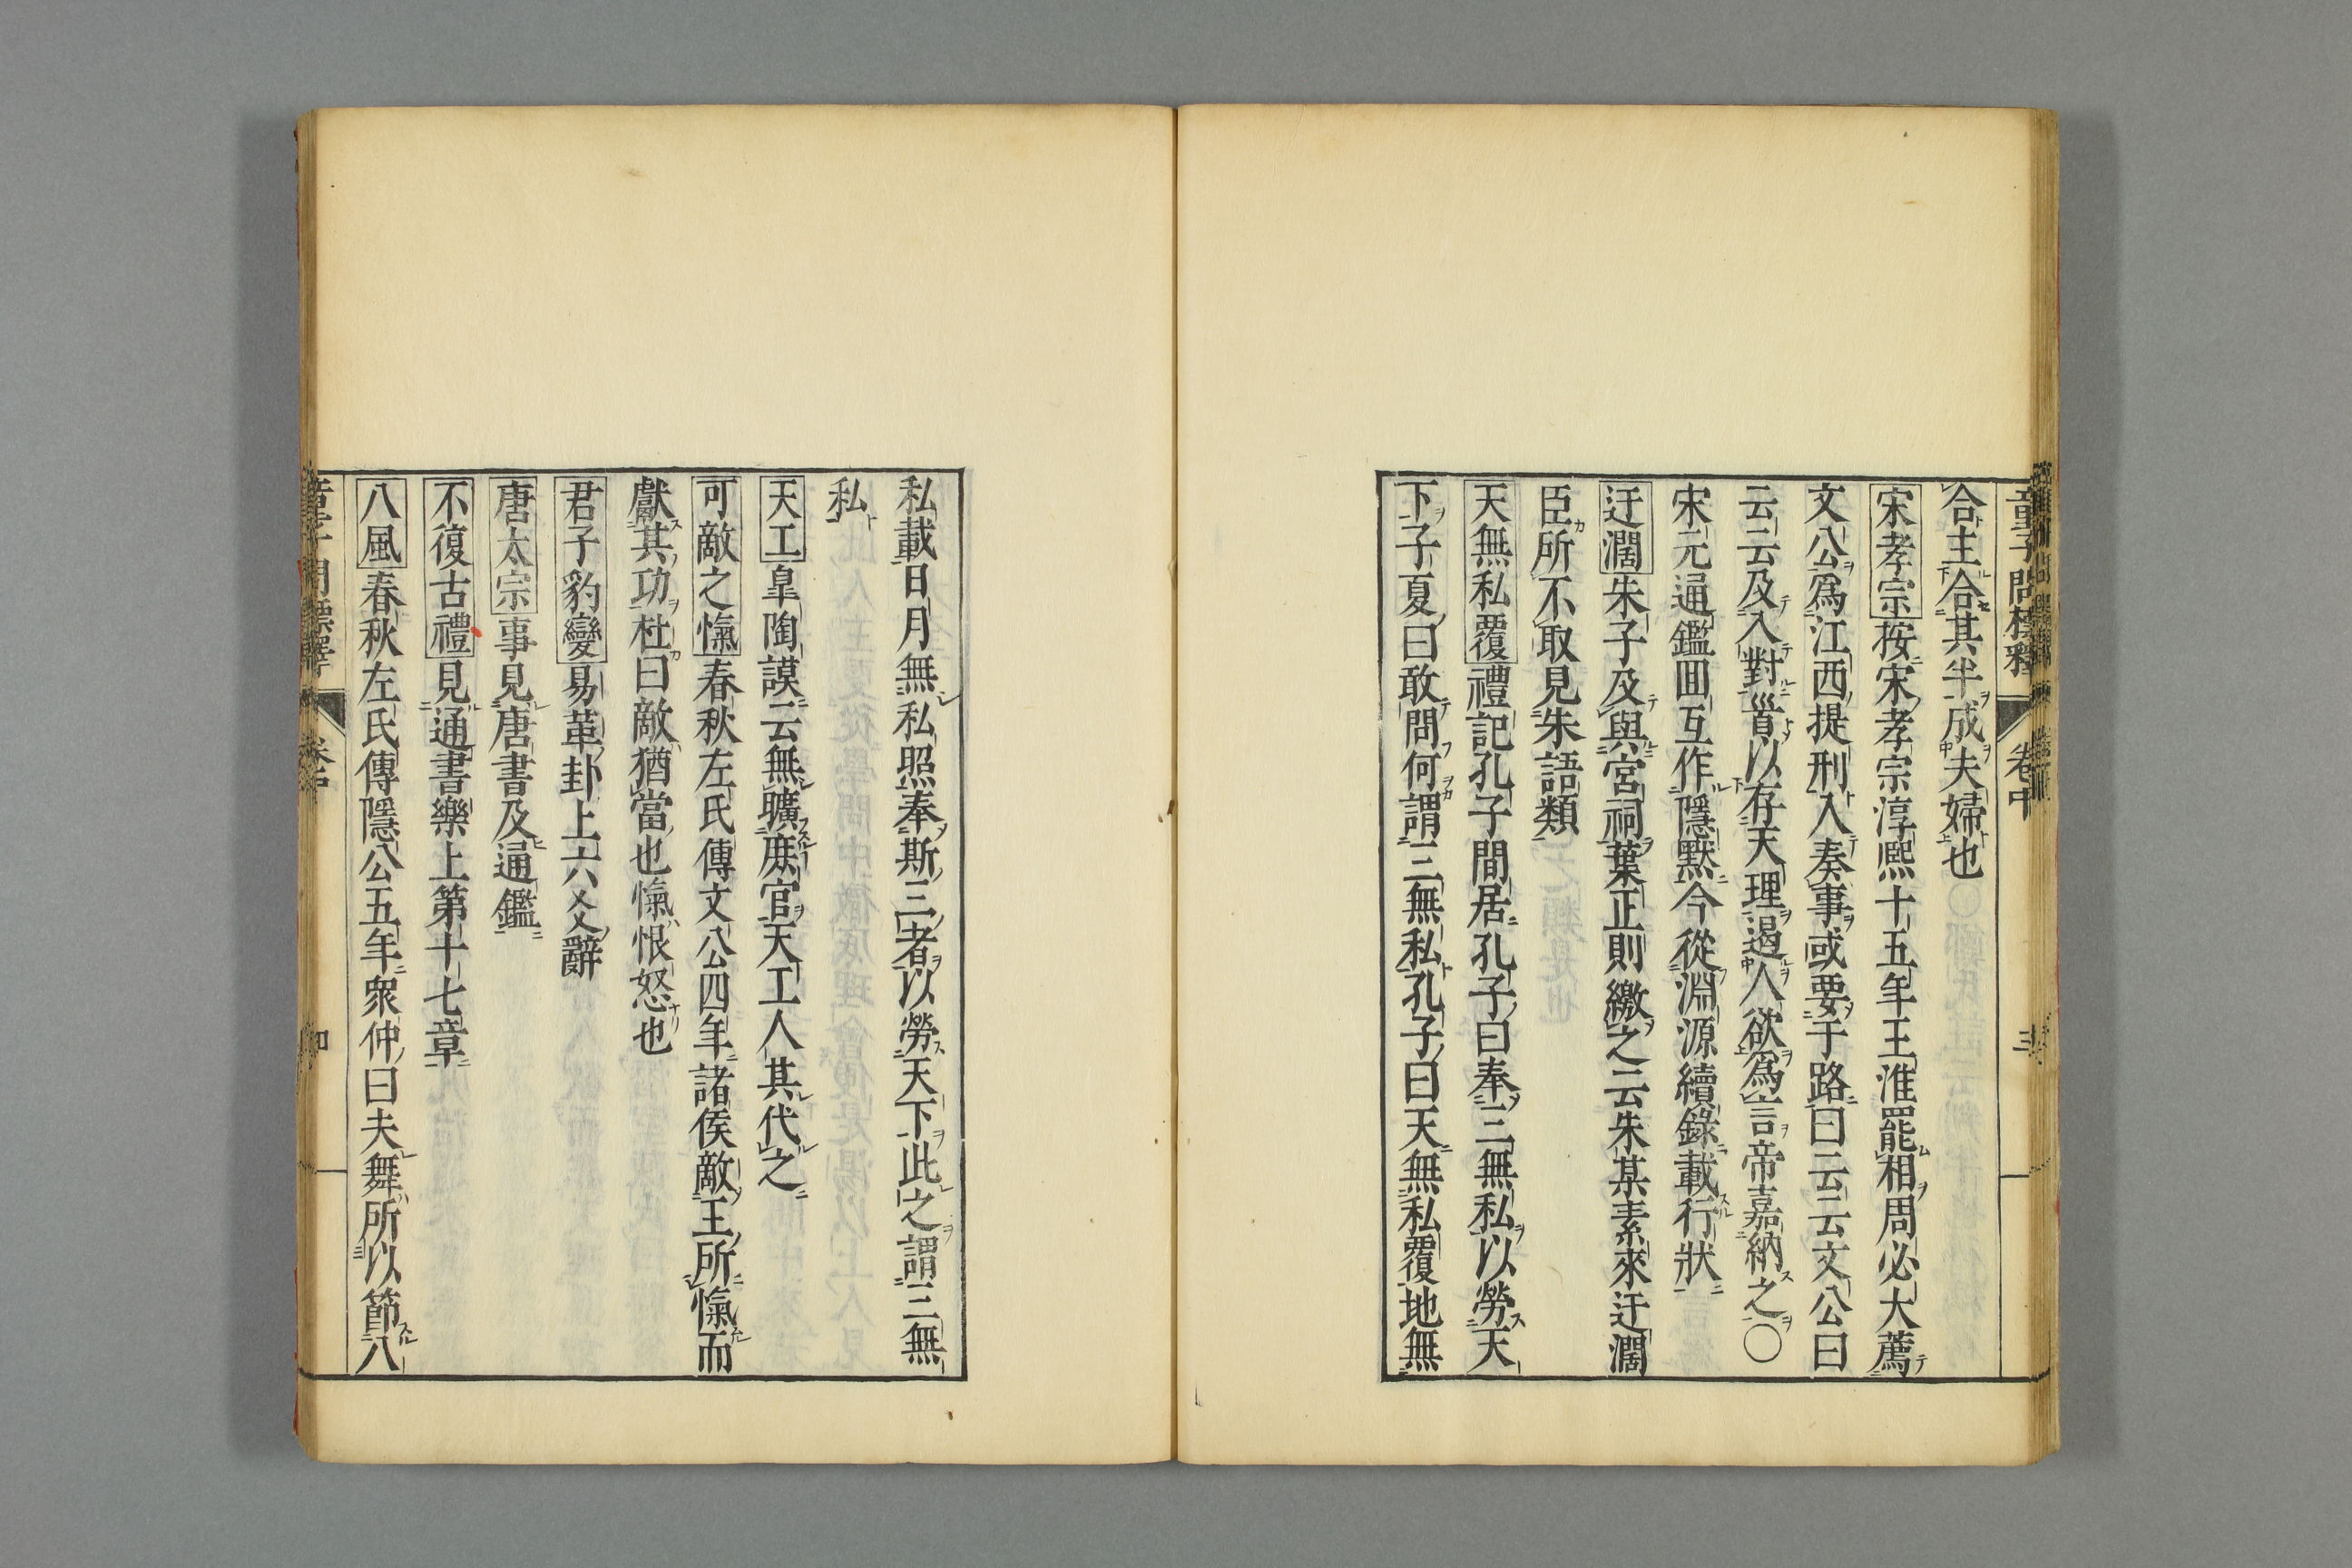 童子問標釋 卷中 三
合主合其半成夫婦也
宋孝宗按宋孝宗淳熙十五年王淮罷相周必大薦
文公爲江西提刑入奏事或要于路曰云云文公曰
云云及入對首以存天理遏人欲爲言帝嘉納之〇
宋元通鑑囬互作隱默今從淵源續錄載行狀
迂濶朱子及與宮祠葉正則繳之云朱某素來迂濶
臣所不取見朱語類
天無私覆禮記孔子間居孔子曰奉三無私以勞天
下子夏曰敢問何謂三無私孔子曰天無私覆地無
私載日月無私照奉斯三者以勞天下此之謂三無
私
天工皐陶謨云無曠庶官天工人其代之
可敵之愾春秋左氏傳文公四年諸侯敵王所愾而
獻其功杜曰敵猶當也愾恨怒也
君子豹變易革卦上六爻辭
唐太宗事見唐書及通鑑
不復古禮見通書樂上第十七章
八風春秋左氏傳隱公五年衆仲曰夫舞所以節八
童子問標釋 卷中